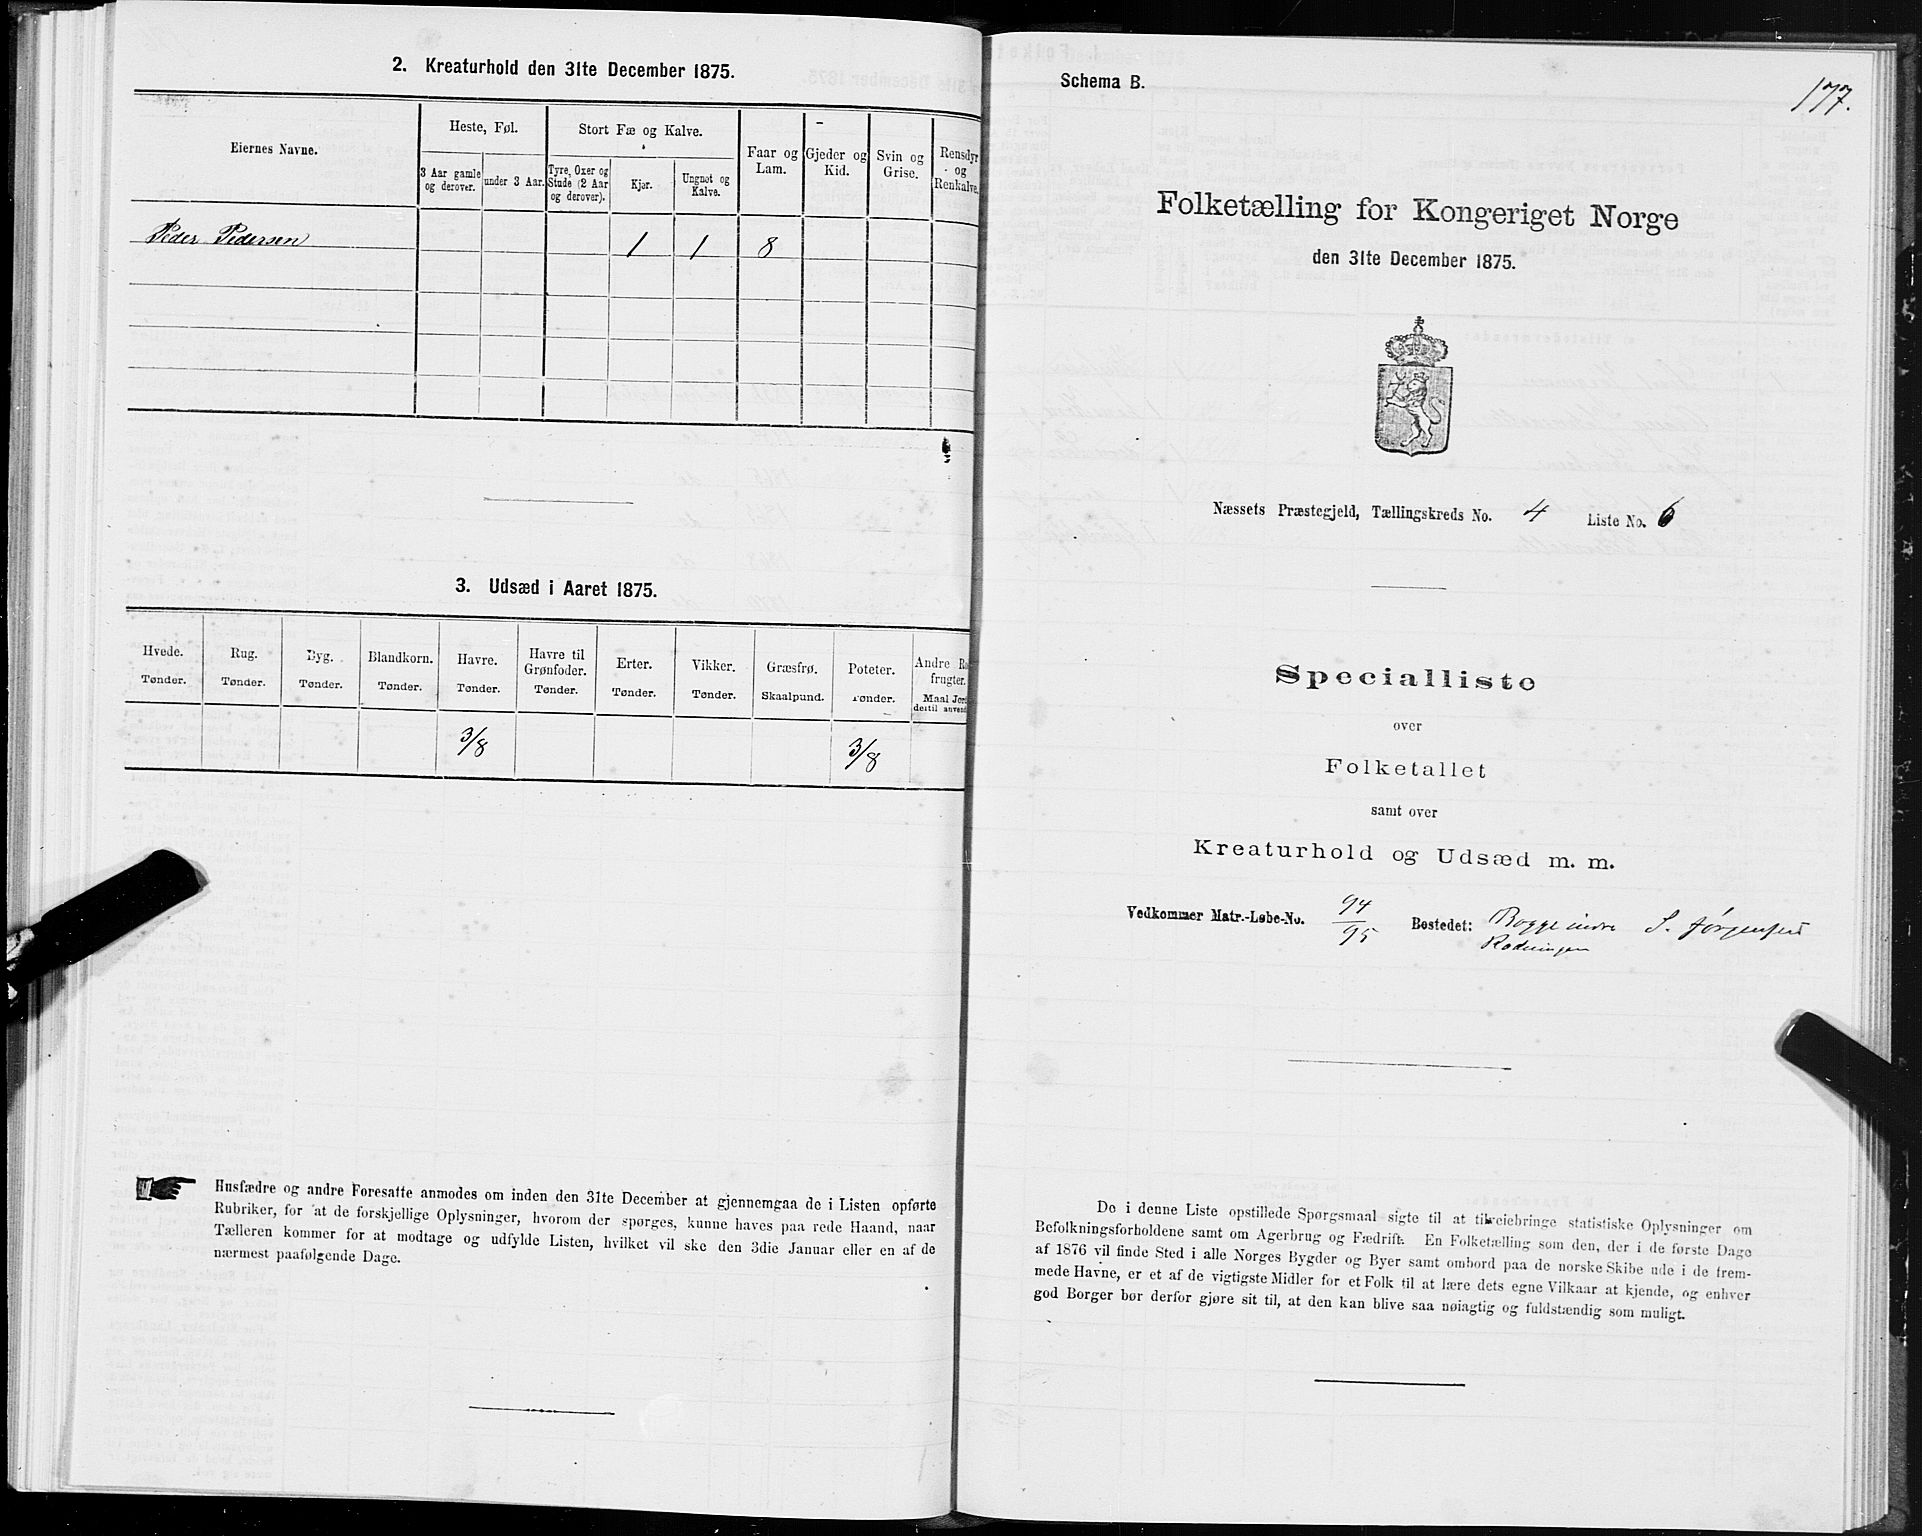 2. Kreaturhold den 31te December 1875.
Eiernes Navne.
Heste, Føl.
Stort Fæ og Kalve.
Faar og Lam.
Gjeder og Kid.
Svin og Grise.
Rensdyr og Renkalve.
3 Aar gamle og derover.
under 3 Aar.
Tyre, Oxer og Stude (2 Aar og derover).
Kjør.
Ungnøt og Kalve.
Peder Pedersen 1 1 8
3. Udsæd i Aaret 1875.
Hvede. Tønder.
Rug. Tønder.
Byg. Tønder.
Blandkorn. Tønder.
Havre. Tønder.
Havre til Grønfoder. Tønder.
Erter. Tønder.
Vikker. Tønder.
Græsfrø. Skaalpund.
Poteter. Tønder.
Andre frugter. Maal dertil
3/8 3/8
Husfædre og andre Foresatte anmodes om inden den 31te December at gjennemgaa de i Listen opførte
Rubriker, for at de forskjellige Oplysninger, hvorom der spørges, kunne haves paa rede Haand, naar
Tælleren kommer for at modtage og udfylde Listen, hvilket vil ske den 3die Januar eller en af de
nærmest paafølgende Dage.
Schema B.
177.
Folketælling for Kongeriget Norge
den 31te December 1875.
Næssets Præstegjeld, Tællingskreds No. 4 Liste No. 6
Specialliste
over
Folketallet
samt over
Kreaturhold og Udsæd m. m.
Vedkommer Matr.-Løbe-No. 94/95 Bostedet: Bogge indre S. Jørgenses
Rødningen
De i denne Liste opstillede Spørgsmaal sigte til at tilveiebringe statistiske Oplysninger om
Befolkningsforholdene samt om Agerbrug og Fædrift. En Folketælling som den, der i de første Dage
af 1876 vil finde Sted i alle Norges Bygder og Byer samt ombord paa de norske Skibe ude i de frem-
mede Havne, er et af de vigtigste Midler for et Folk til at lære dets egne Vilkaar at kjende, og enhver
god Borger bør derfor gjøre sit til, at den kan blive saa nøiagtig og fuldstændig som muligt.